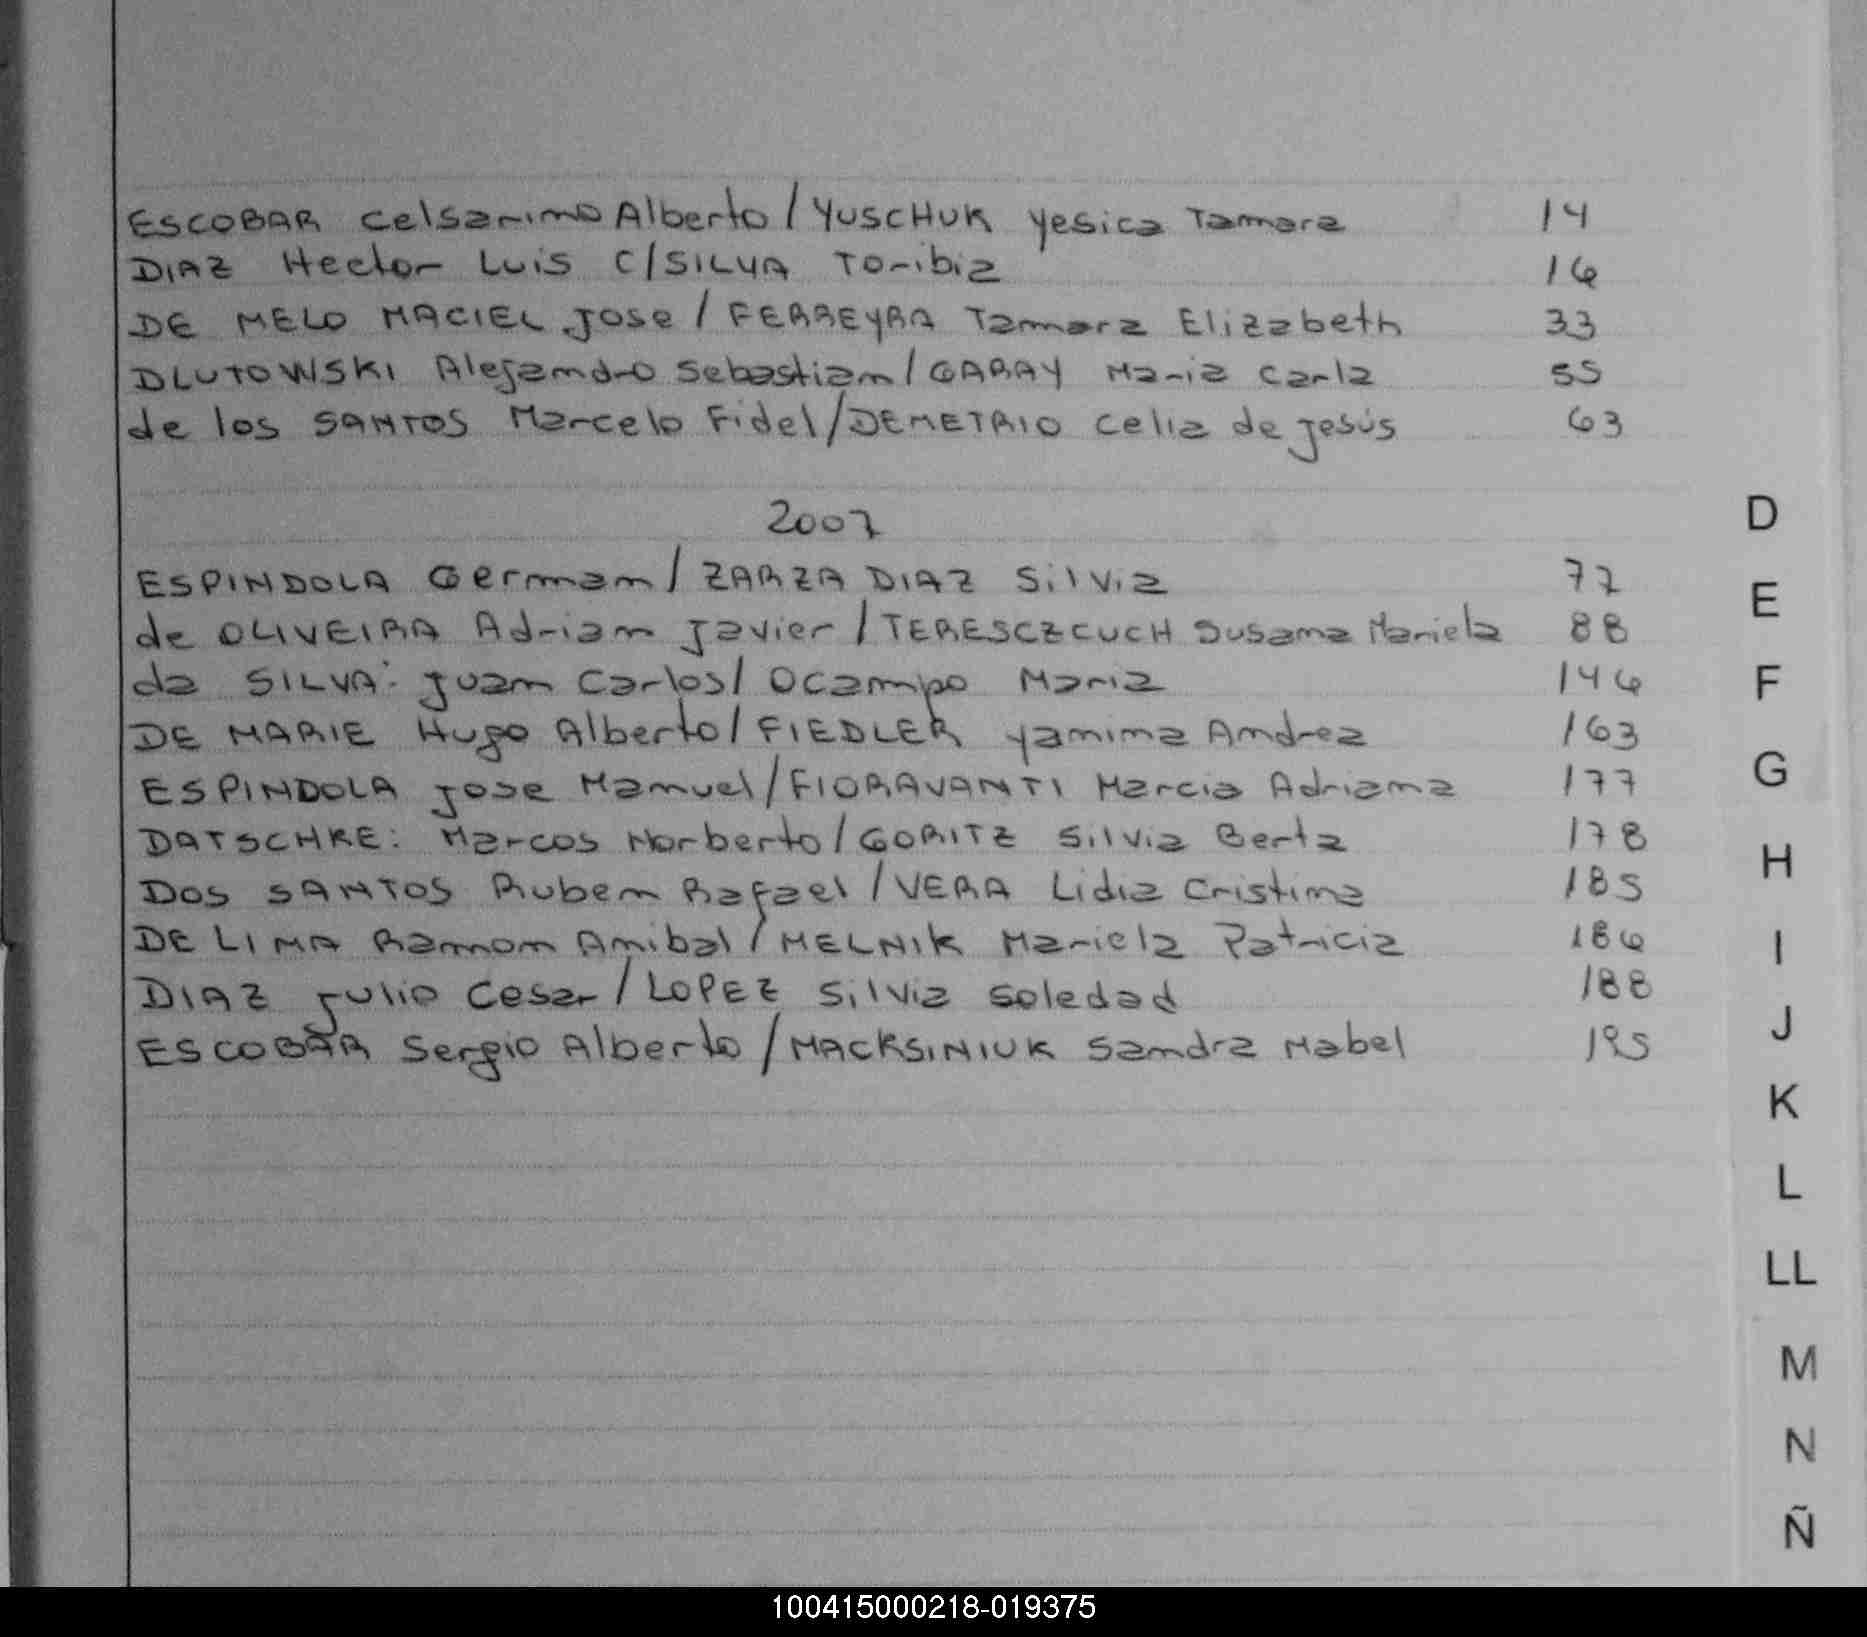 ESCOBAR Celsanimo Alberto / YUSCHUK Yesica Tamara 14
DIAZ Hector Luis C/SILVA Toribia 16
DE MELO MACIEL Jose / FERREYRA Tamara Elizabeth 33
DLUTOWSKI Alejandro Sebastian / GARAY Maria Carla 55
de los SANTOS Marcelo Fidel / DEMETRIO Celia de Jesús 63
2007
ESPINDOLA German / ZARZA DIAZ Silvia 77
de OLIVEIRA Adrian Javier / TERESCZCUCH Susana Mariela 88
da SILVA: Juan Carlos / Ocampo Maria 146
DE MARIE Hugo Alberto / FIEDLER Yanina Andrea 163
ESPINDOLA Jose Manuel / FIORAVANTI Marcia Adriana 177
DATSCHKE: Marcos Norberto / GORITZ Silvia Berta 178
DOS SANTOS Ruben Rafael / VERA Lidia Cristina 185
DE LIMA Ramon Anibal / MELNIK Mariela Patricia 186
DIAZ Julio Cesar / LOPEZ Silvia Soledad 188
ESCOBAR Sergio Alberto / MACKSINIUK Sandra Mabel 195
D
E
F
G
H
I
J
K
L
LL
M
N
Ñ
100415000218-019375